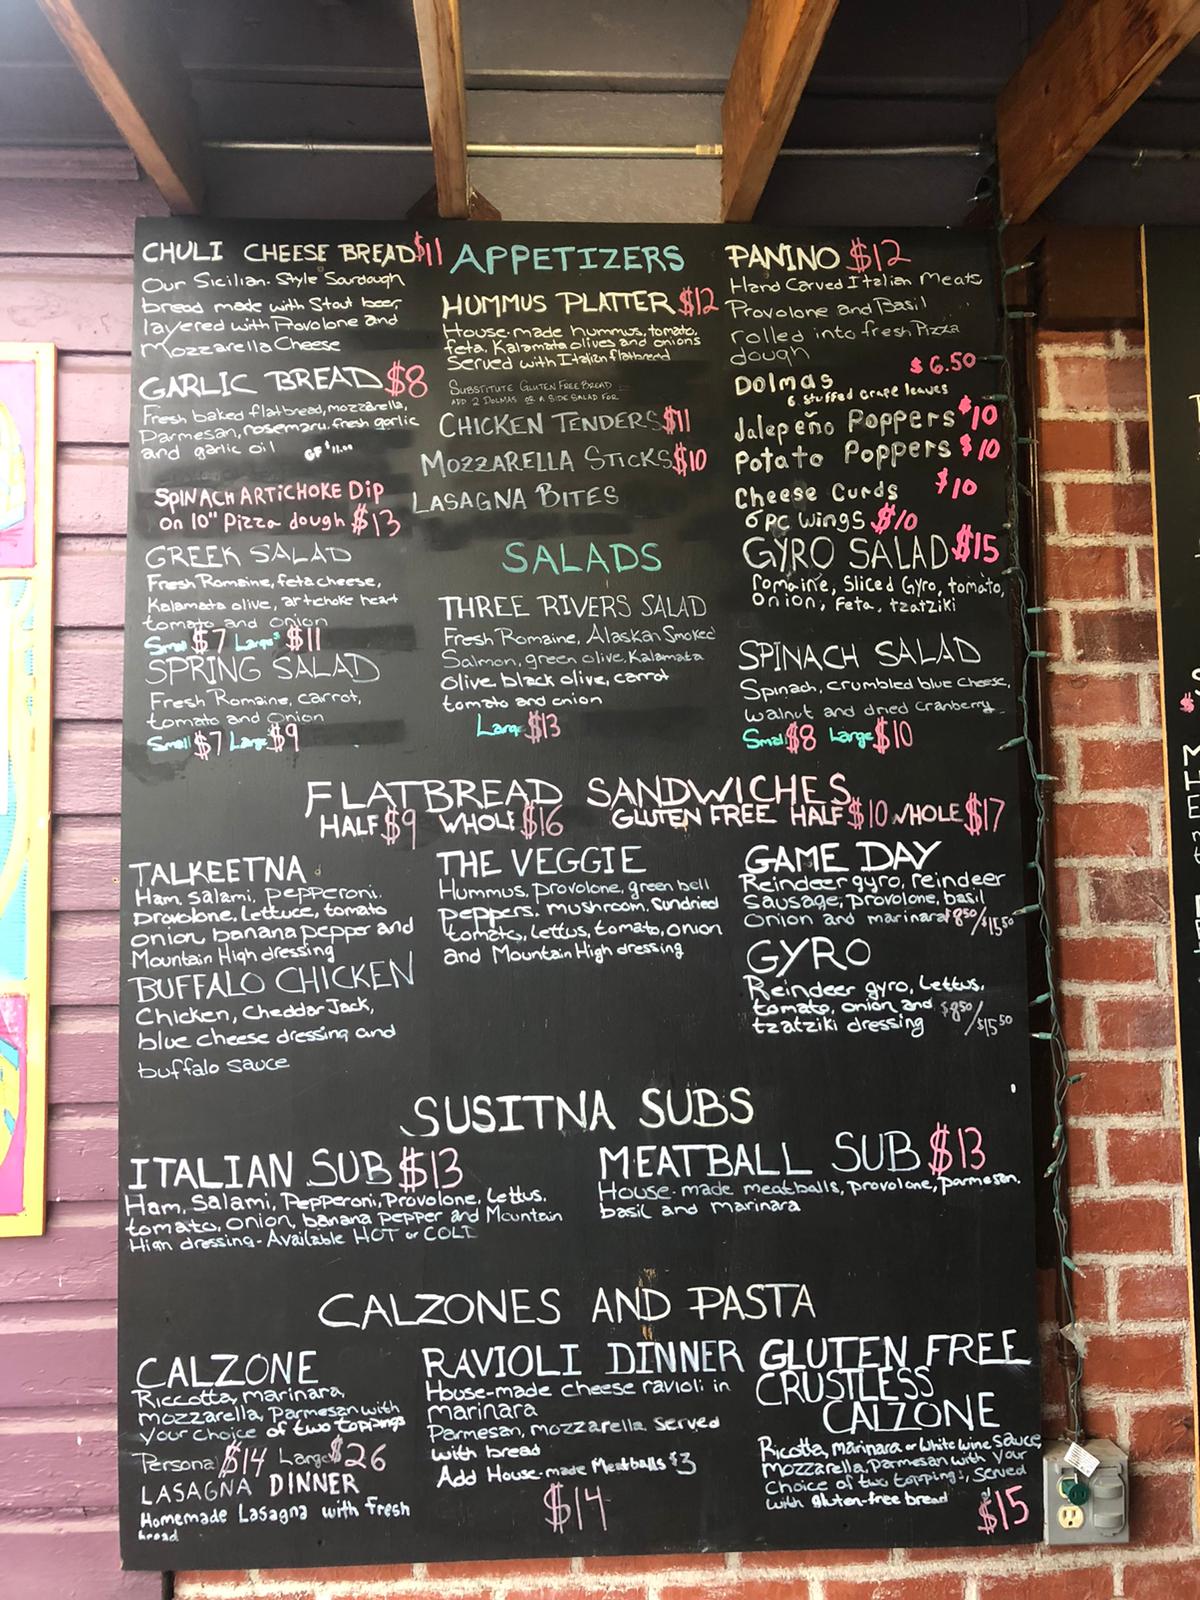 CHULI CHEESE BREAD $11
Our Sicilian-Style Sourdough
bread made with Stout beer,
layered with Provolone and
Mozzarella Cheese
GARLIC BREAD $8
Fresh baked flatbread, mozzarella,
Parmesan, rosemary, fresh garlic
and garlic oil GF $11.00
SPINACH ARTICHOKE DIP
on 10" Pizza dough $13
APPETIZERS
HUMMUS PLATTER $12
House-made hummus, tomato,
feta, Kalamata olives and onions
Served with Italian flatbread
SUBSTITUTE GLUTEN FREE BREAD
ADD 2 DOLMAS OR A SIDE SALAD FOR
CHICKEN TENDERS $11
MOZZARELLA STICKS $10
LASAGNA BITES
PANINO $12
Hand Carved Italian Meats
Provolone and Basil
rolled into fresh Pizza
dough
Dolmas $6.50
6 stuffed grape leaves
Jalepeño Poppers $10
Potato Poppers $10
Cheese Curds $10
6 PC Wings $10
GREEK SALAD
Fresh Romaine, feta cheese,
Kalamata olive, artichoke heart
tomato and onion
Small $7 Large $11
SPRING SALAD
Fresh Romaine, carrot,
tomato and onion
Small $7 Large $9
SALADS
THREE RIVERS SALAD
Fresh Romaine, Alaskan Smoked
Salmon, green olive, Kalamata
olive, black olive, carrot
tomato and onion
Large $13
GYRO SALAD $15
romaine, Sliced Gyro, tomato,
onion, feta, tzatziki
SPINACH SALAD
Spinach, crumbled blue cheese,
walnut and dried cranberry
Small $8 Large $10
FLATBREAD SANDWICHES
HALF $9 WHOLE $16 GLUTEN FREE HALF $10 WHOLE $17
TALKEETNA
Ham, Salami, pepperoni,
provolone, lettuce, tomato
onion, banana pepper and
Mountain High dressing
BUFFALO CHICKEN
Chicken, Cheddar Jack,
blue cheese dressing and
buffalo sauce
THE VEGGIE
Hummus, provolone, green bell
peppers, mushroom, Sundried
tomato, lettus, tomato, onion
and Mountain High dressing
GAME DAY
Reindeer gyro, reindeer
Sausage, provolone, basil
onion and marinara $8.50/$15.50
GYRO
Reindeer gyro, Lettus,
tomato, onion and
tzatziki dressing $8.50/$15.50
SUSITNA SUBS
ITALIAN SUB $13
Ham, Salami, Pepperoni, Provolone, lettus,
tomato, onion, banana pepper and Mountain
High dressing - Available HOT or COLD
MEATBALL SUB $13
House-made meatballs, provolone, parmesan,
basil and marinara
CALZONES AND PASTA
CALZONE
Riccotta, marinara,
mozzarella, Parmesan with
your choice of two toppings
Personal $14 Large $26
LASAGNA DINNER
Homemade Lasagna with fresh
bread
RAVIOLI DINNER
House-made cheese ravioli in
marinara
Parmesan, mozzarella. Served
with bread
Add House-made Meatballs $3
$14
GLUTEN FREE
CRUSTLESS
CALZONE
Ricotta, Marinara or White wine Sauce,
Mozzarella, Parmesan with Your
Choice of two toppings, Served
with gluten-free bread
$15